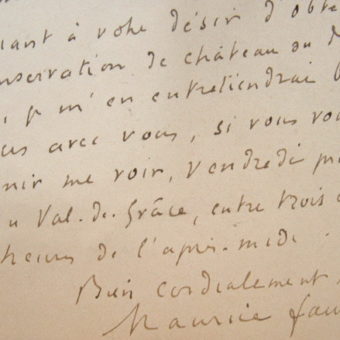 uant à votre désir d'obte
nservation de château ou
, je m'en entretiendrai
us avec vous, si vous vou
enir me voir, Vendredi pr
u Val-de-Grâce, entre trois
heures de l'après-midi.
Bien cordialement
Maurice Fau